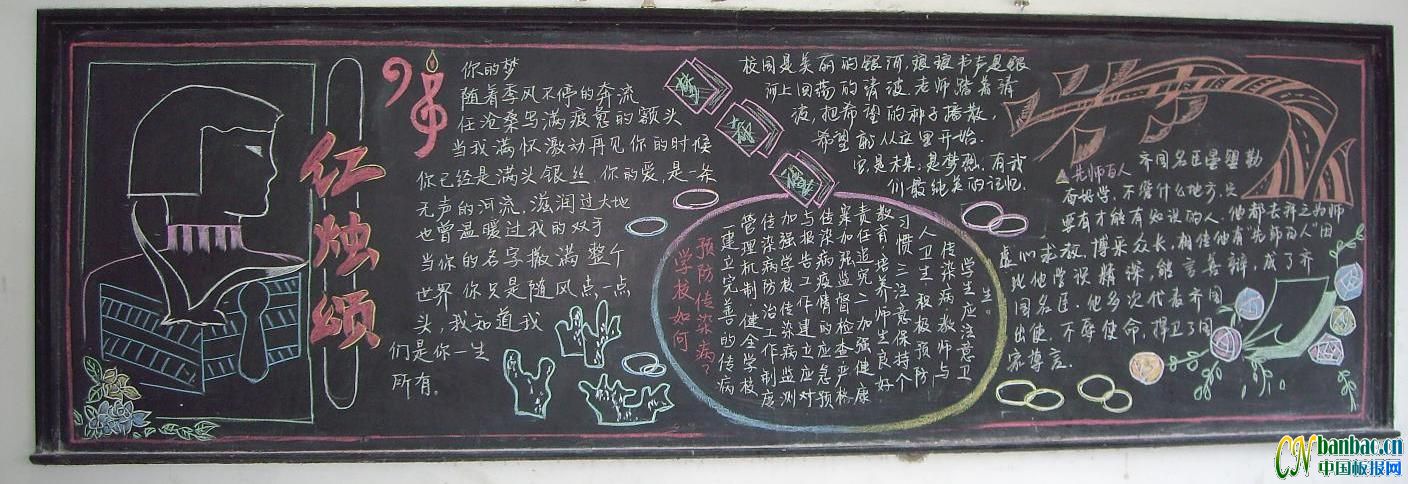 红烛颂
你的梦
随着季风不停的奔流
任沧桑写满疲惫的额头
当我满怀激动再见你的时候
你已经是满头银丝，你的爱，是一条
无声的河流，滋润过大地
也曾温暖过我的双手
当你的名字撒满整个
世界 你只是随风点一点
头，我知道我
们是你一生
所有。
校园是美丽的银河，琅琅书声是银
河上回荡的清波 老师踏着清
波，把希望的种子播散，
希望 从这里开始.
它是未来，是梦想，有我
们最纯美的记忆.
学校如何
预防传染病？
一建立完善的传病
管理机制 健全学校
传染病防治工作制度
加强学校传染病监测
与报告工作建立应对
传染病疫情的应急预
案加强监督检查严格
责任追究二加强健康
教育培养师生良好
习惯三注意保持个
人卫生积极预防
传染病教师与
学生应注意卫
生。
先师百人 齐国名臣晏婴勤
奋好学，不管什么地方，只
要有才能有知识的人，他都去拜之为师
虚心求教，博采众长，相传他有“先师百人”因
此他学识精深，能言善辩，成了齐
国名臣，他多次代表齐国
出使，不辱使命，捍卫了国
家尊言.
CN banbao.cn
中国板报网